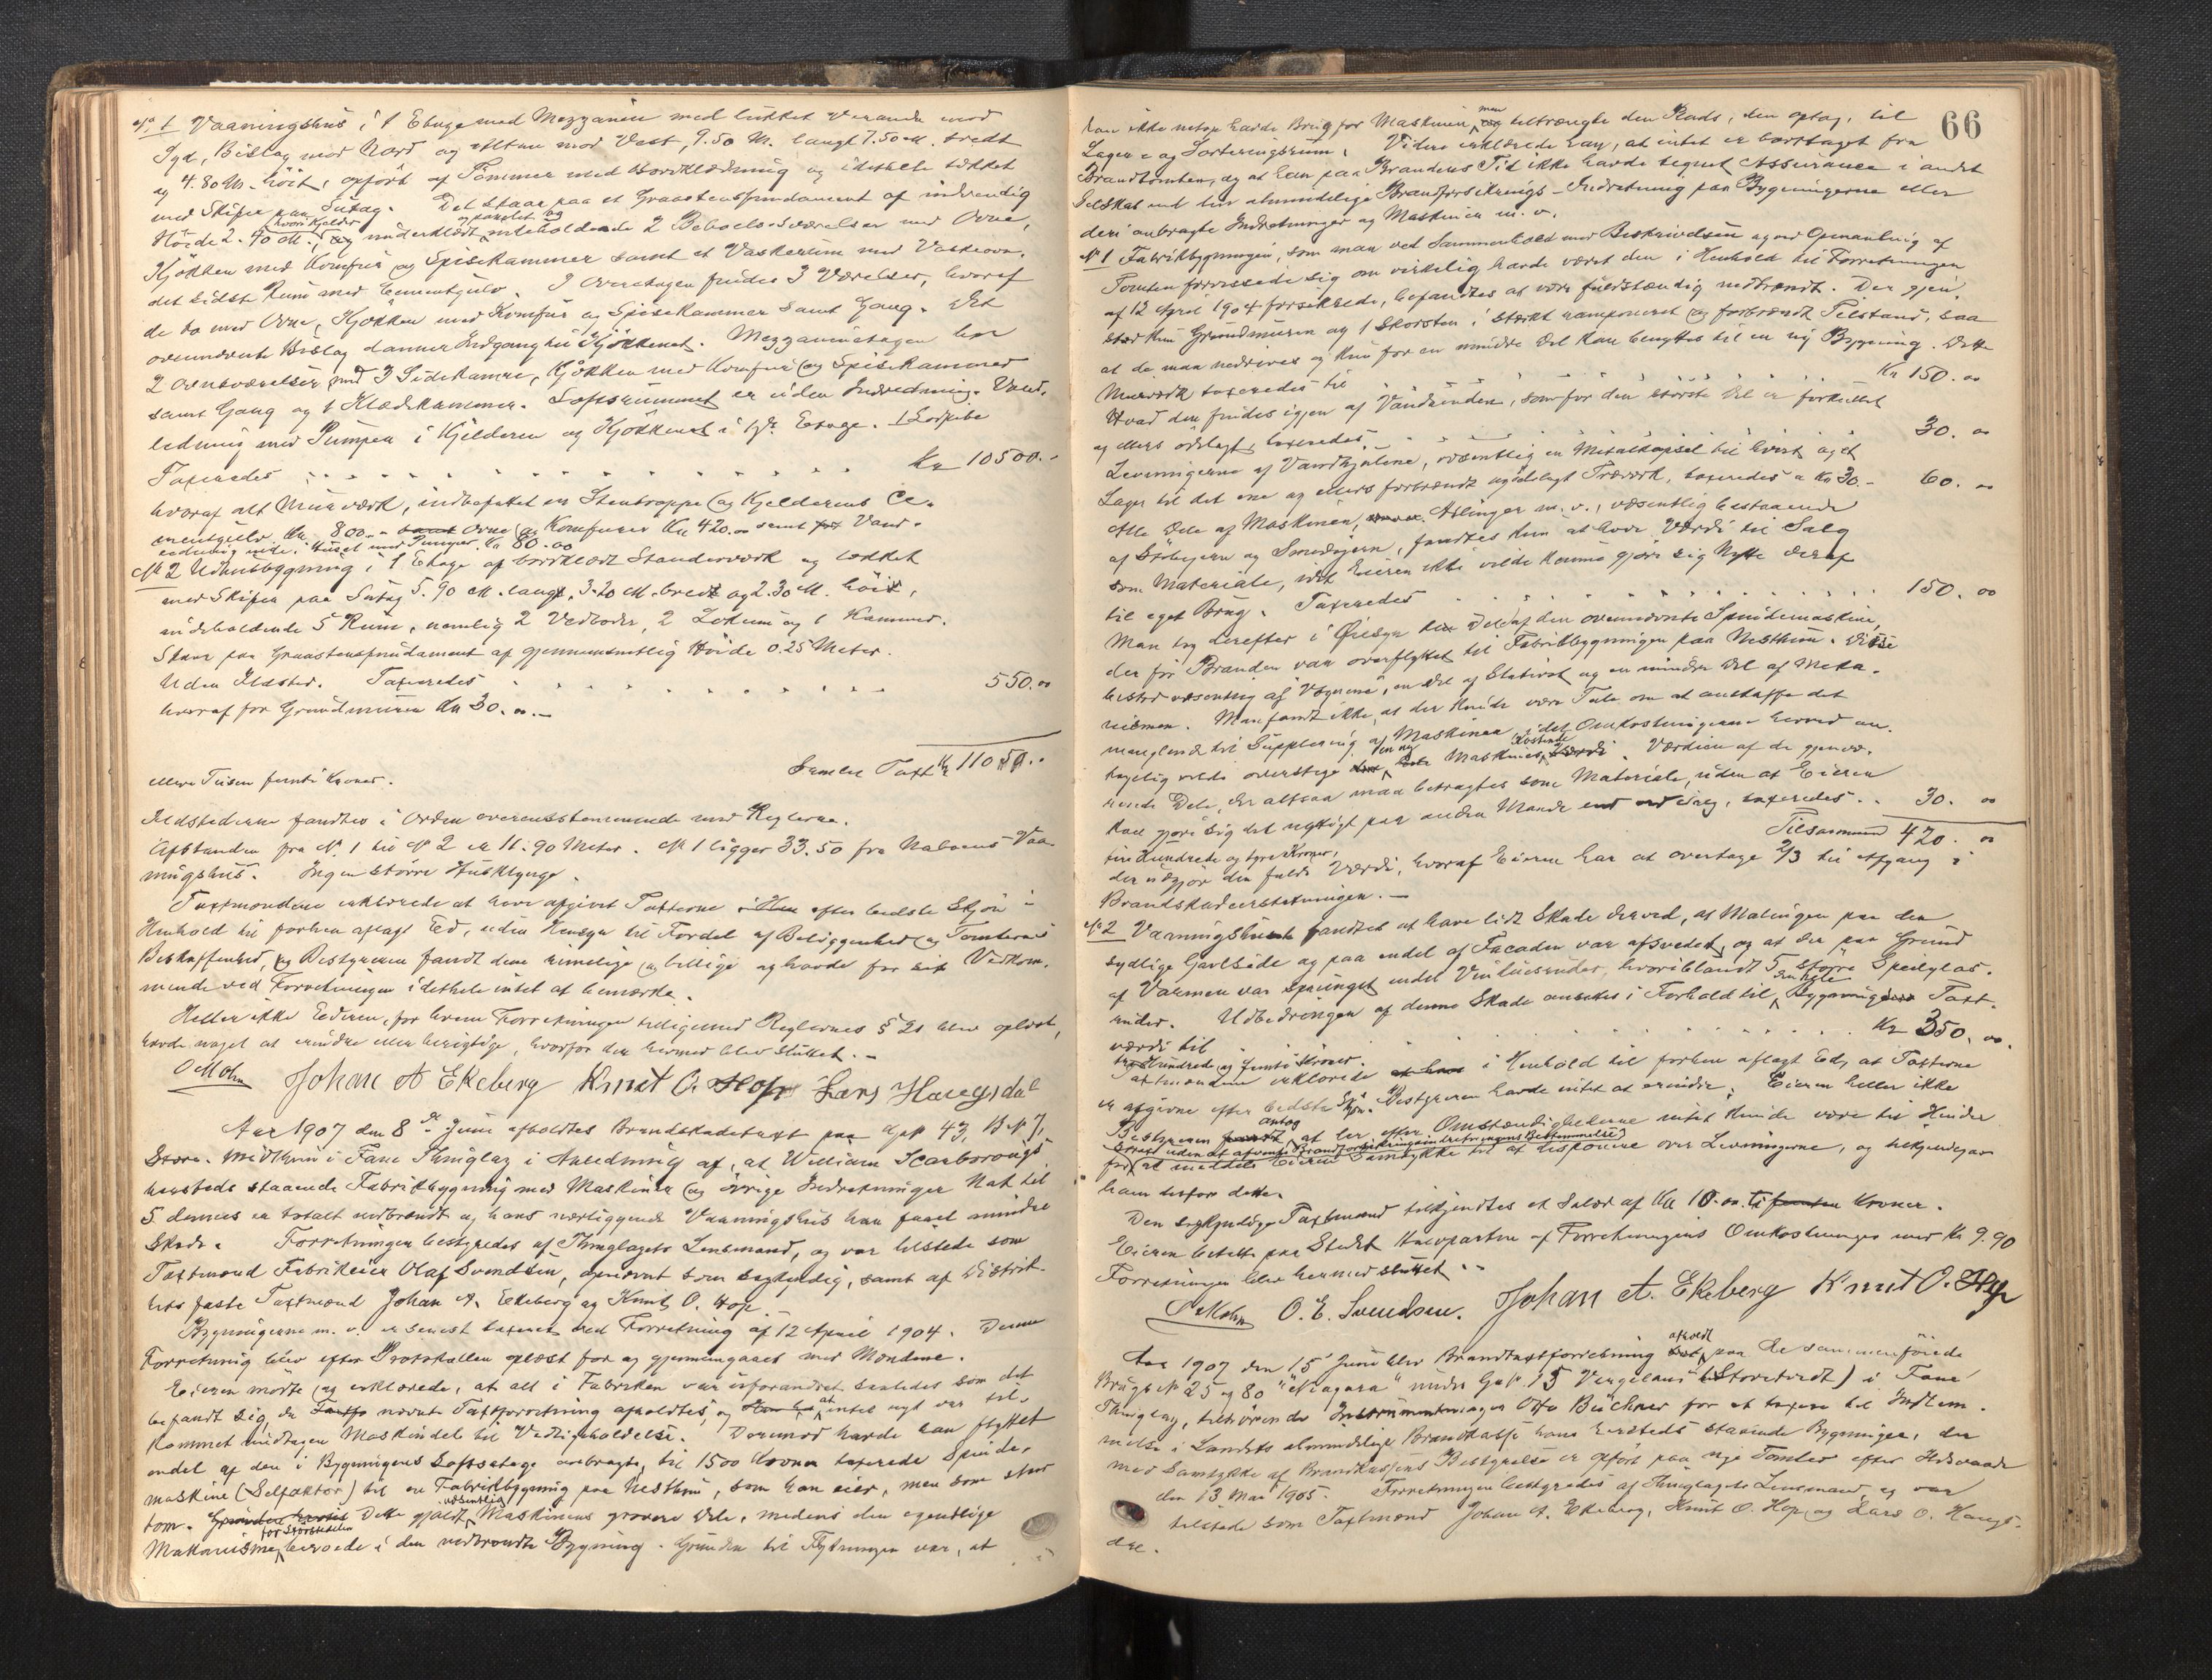 No. 1 Vaaningshus i 1 Etage med Mezzanin med lukket Veranda mod
Syd, Bislag mod Nord og Altan mod Vest, 9.50 M. langt 7.50 M. bredt
og 4.80 M. høit, opført af Tømmer med Bordklædning og tækket
med Skifer paa Sutag. Det staar paa et Graastensfundament af indvendig
Høide 2.40 M., hvori Kjelder, og panelet og indeholdende 2 Beboelsesværelser med Ovne,
Kjøkken med Komfur og Spisekammer samt et Vaskerum med Vaskeovn,
det sidste Rum med Cementgulv. I Overetagen findes 3 Værelser, hvoraf
de to med Ovne, Kjøkken med Komfur og Spisekammer samt Gang. Det
ovennævnte Bislag danner Indgang til Kjøkkenet. Mezzaninetagen har
2 Ovnsværelser med 3 Sidekamre, Kjøkken med Komfur og Spisekammer
samt Gang og 1 Klædekammer. Loftsrummet er uden Indredning. Vand-
ledning med Pumper i Kjelderen og Kjøkkenet i 1ste Etage. 1 Lodpibe
Taxeredes Kr 10500.-
hvoraf alt Murværk, indbefattet en Stentrappe og Kjelderens Ce-
mentgulv Kr. 800.- samt Ovne og Komfurer Kr 420.00 samt for Vand-
ledning inde i Huset med Pumper Kr 80.00
No 2 Udhusbygning i 1 Etage af bordklædt Standerværk og tækket
med Skifer paa Sutag 5.90 M. langt, 3.20 M. bredt og 2.30 M. høit,
indeholdende 5 Rum, nemlig 2 Vedboder, 2 Lokum og 1 Kammer.
Staar paa Graastensfundament af gjennemsnitlig Høide 0.25 Meter.
Uden Ildsted. Taxeredes 550.00
hvoraf for Grundmuren Kr 30.00.-
Samlet Taxt Kr 11050.-
elleve Tusen femti Kroner.
Ildstederne fandtes i Orden overensstemmende med Reglerne.
Afstanden fra No. 1 til No 2 er 11.90 Meter. No 1 ligger 33.50 fra Naboens Vaa-
ningshus. Ingen større Husklynge.
Taxtmændene erklærede at have afgivet Taxterne efter bedste Skjøn i
Henhold til forhen aflagt Ed, uden Hensyn til Fordel af Beliggenhed og Tomternes
Beskaffenhed, og Bestyreren fandt dem rimelige og billige og havde for sit Vedkom-
mende ved Forretningen idethele intet at bemærke.
Heller ikke Eieren, for hvem Forretningen tilligemed Reglernes § 21 blev oplæst,
havde noget at erindre eller berigtige, hvorfor den hermed blev sluttet.-
O Mohn Johan A Ekeberg Knut O. Hop Lars Haugsdal
Aar 1907 den 8de Juni afholdtes Brandskadetaxt paa Gn 43, Bn 7,
Store Midttun i Fane Thinglag i Anledning af, at William Scarboroughs
hersteds staaende Fabrikbygning med Maskiner og øvrige Indretninger Nat til
5 dennes er totalt nedbrændt og hans nærliggende Vaaningshus har faaet mindre
Skade. Forretningen bestyredes af Thinglagets Lensmand, og var tilstede som
Taxtmænd Fabrikeier Olaf Svendsen, opnævnt som sagkyndig, samt af Distrik-
tets faste Taxtmænd Johan A. Ekeberg og Knut O. Hop.
Bygningerne m. v. er senest taxeret ved Forretning af 12 April 1904. Denne
Forretning blev efter Protokollen oplæst for og gjennemgaaet med Mændene.
Eieren mødte og erklærede, at alt i Fabriken var uforandret saaledes som det
befandt sig, da nævnte Taxtforretning afholdtes, og at intet nyt var til-
kommet undtagen Maskindel til Vedligeholdelse. Derimod havde han flyttet
endel af den i Bygningens Loftsetage anbragte, til 1500 Kroner taxerede Spinde-
maskine (Selfaktor) til en Fabrikbygning paa Nesttun, som han eier, men som stod
tom. Dette gjaldt væsentlig Maskinens grovere Dele, medens den egentlige
Mekanisme for Størstedelen beroede i den nedbrændte Bygning. Grunden til Flytningen var, at
66
han ikke netop havde Brug for Maskinen, men tiltrængte den Plads, den optog, til
Lager- og Sorteringsrum. Videre erklærede han, at intet er borttaget fra
Brandtomten, og at han paa Brandens Tid ikke havde tegnet Assurance i andet
Selskab end den almindelige Brandforsikrings-Indretning paa Bygningerne eller
deri anbragte Indretninger og Maskiner m. v.
No 1 Fabrikbygningen, som man ved Sammenhold med Beskrivelsen og ved Opmaaling af
Tomten forvissede sig om virkelig havde været den i Henhold til Forretningen
af 12 April 1904 forsikrede, befandtes at være fuldstændig nedbrændt. Der gjen-
staar kun Grundmuren og 1 Skorsten i stærkt ramponeret og forbrændt Tilstand, saa
at de maa nedrives og kun for en mindre Del kan benyttes til en ny Bygning. Dette
Murværk taxeredes til Kr 150.00
Hvad der findes igjen af Vandrenden, som for den største Del er forkullet
og ellers ødelagt, taxeredes 30.00
Levningerne af Vandhjulene, væsentlig en Metalkapsel til hvert og et
Lager til det ene og ellers forbrændt og ødelagt Træværk, taxeredes a Kr 30.- 60.00
Alle Dele af Maskiner, Aslinger m. v., væsentlig bestaaende
af Støbejern og Smedejern, fandtes kun at have Værdi til Salg
som Materiale, idet Eieren ikke vilde kunne gjøre sig Nytte deraf
til eget Brug. Taxeredes 150.00
Man tog derefter i Øiesyn Delene af den ovennævnte Spindemaskine,
der før Branden var overflyttet til Fabrikbygningen paa Nesttun. Disse
bestod væsentlig af Vognene, en Del af Stativet og en mindre Del af Meka-
nismen. Man fandt ikke, at der kunde være Tale om at anskaffe det
manglende til Supplering af Maskinen, idet Omkostningerne herved an-
tagelig vilde overstige en ny Maskines Kostende. Værdien af de gjenvæ-
rende Dele, der altsaa maa betragtes som Materiale, uden at Eieren
kan gjøre sig det nyttigt paa anden Maade end ved Salg, taxeredes 30.00
Tilsammen 420.00
fire Hundrede og tyve Kroner,
der udgjør den fulde Værdi, hvoraf Eieren har at overtage 2/3 til Afgang i
Brandskadeerstatningen.-
No 2 Vaaningshuset fandtes at have lidt Skade derved, at Malingen paa den
sydlige Gavlside og paa endel af Facaden var afsvedet, og at der paa Grund
af Varmen var sprunget endel Vinduesruder, hvoriblandt 5 større Speilglas-
ruder. Udbedringen af denne Skade ansættes i Forhold til den hele Bygnings Taxt-
værdi til Kr 350.00.
tre Hundrede og femti Kroner.
Taxtmændene erklærede i Henhold til forhen aflagt Ed, at Taxterne
er afgivne efter bedste Skjøn. Bestyreren havde intet at erindre. Eieren heller ikke
Bestyreren antog at der efter Omstændighederne intet kunde være til Hinder
for straks uden at afvente Brandforsikringsindretningens Bestemmelse at meddele Eieren Samtykke til at disponere over Levningerne, og tilkjendegav
ham derfor dette.
Den sagkyndige Taxtmand tilkjendtes et Salær af Kr 10.00 ti Kroner.
Eieren betalte paa Stedet Halvparten af Forretningens Omkostninger med Kr 9.90
Forretningen blev hermed sluttet.-
O Mohn O. E. Svendsen. Johan A. Ekeberg Knut O. Hop
Aar 1907 den 15 Juni blev Brandtaxtforretning afholdt paa de sammenføiede
Brugs No 25 og 80 "Niagara" under Gn. 15 (Storetvedt) i Fane
Thinglag, tilhørende Instrumentmager Otto Büchner for at taxere til Indlem-
melse i Landets almindelige Brandkasse hans hersteds staaende Bygninger, der
med Samtykke af Brandkassens Bestyrelse er opført paa nye Tomter efter Ildsvaade
den 13 Mai 1905. Forretningen bestyredes af Thinglagets Lensmand og var
tilstede som Taxtmænd Johan A. Ekeberg, Knut O. Hop og Lars O. Haugs-
dal.